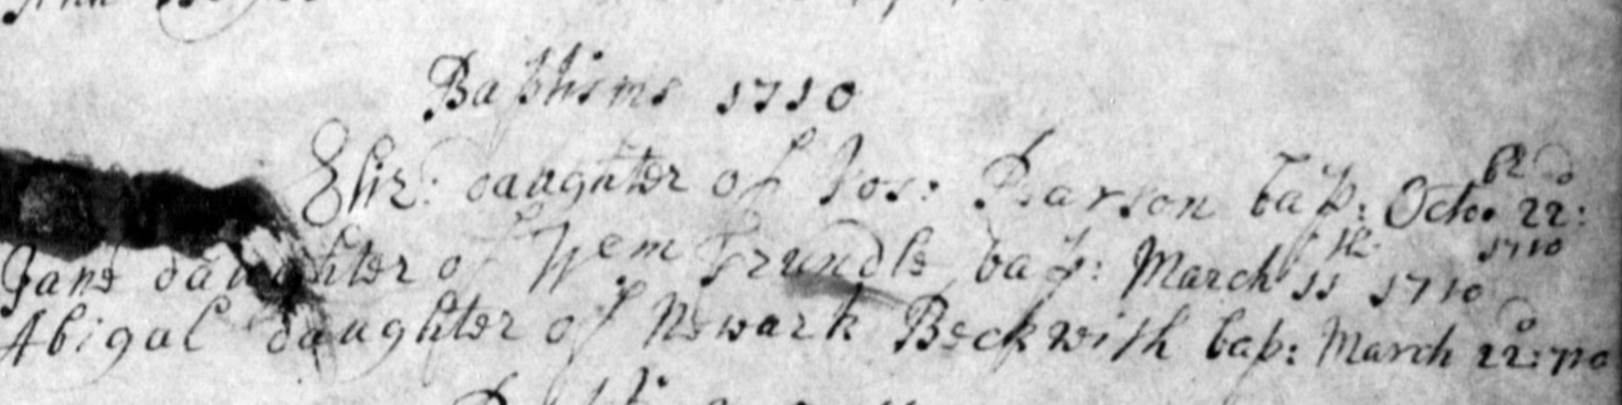 Baptisms 1710
Eliz: daughter of Jos: Pearson bap: Octobr 22d: 1710
Jane daughter of Wem Trundle bap: March 11th 1710
Abigal daughter of Newark Beckwith bap: March 22d: 1710